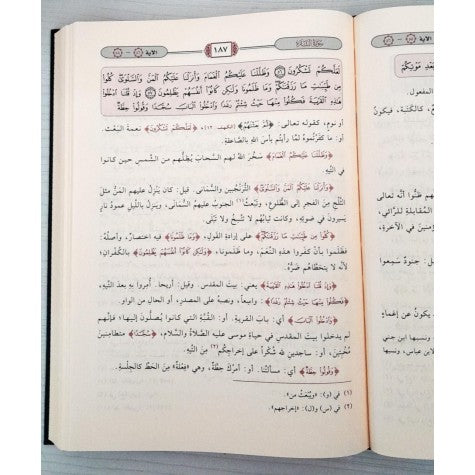 الآية
١٨٧
سورة البقرة
لَعَلَّكُمْ تَشْكُرُونَ وَظَلَّلْنَا عَلَيْكُمُ الْغَمَامَ وَأَنزَلْنَا عَلَيْكُمُ الْمَنَّ وَالسَّلْوَىٰ كُلُوا
مِن طَيِّبَٰتِ مَا رَزَقْنَٰكُمْ وَمَا ظَلَمُونَا وَلَٰكِن كَانُوا أَنفُسَهُمْ يَظْلِمُونَ وَإِذْ قُلْنَا ادْخُلُوا
هَٰذِهِ الْقَرْيَةَ فَكُلُوا مِنْهَا حَيْثُ شِئْتُمْ رَغَدًا وَادْخُلُوا الْبَابَ سُجَّدًا وَقُولُوا حِطَّةٌ
أو نوم، كقوله تعالى: ﴿ثُمَّ بَعَثْنَٰهُمْ﴾ [الكهف: ١٢]، ﴿لَعَلَّكُمْ تَشْكُرُونَ﴾ نعمة البَعْث.
أو: ما كَفَرْتُموه لمَّا رأيتُم بأسَ الله بالصَّاعقةِ.
﴿وَظَلَّلْنَا عَلَيْكُمُ الْغَمَامَ﴾ سَخَّرَ اللهُ لهم السَّحابَ يُظِلُّهم من الشَّمسِ حين كانوا
في التِّيه.
﴿وَأَنزَلْنَا عَلَيْكُمُ الْمَنَّ وَالسَّلْوَىٰ﴾ التَّرَنْجَبين والسُّمَانى. قيل: كان يَنزِل عليهم المَنُّ مثلَ
الثَّلْجِ مِن الفجرِ إلى الطُّلوعِ، وتَبعَثُ(١) الجَنوبُ عليهم السُّمَانى، ويَنزِل بالليلِ عمودُ نارٍ
يَسيرون في ضوئِه، وكانت ثيابُهم لا تَتَّسِخُ ولا تَبلَى.
﴿كُلُوا مِن طَيِّبَٰتِ مَا رَزَقْنَٰكُمْ﴾ على إرادةِ القولِ. ﴿وَمَا ظَلَمُونَا﴾ فيه اختصارٌ، وأصلُه:
فظَلَموا بأنْ كَفَروا هذه النِّعَمَ، وما ظَلَمونا، ﴿وَلَٰكِن كَانُوا أَنفُسَهُمْ يَظْلِمُونَ﴾ بالكُفْرانِ؛ لأنَّه
لا يَتخَطَّاهم ضَرُّه.
﴿وَإِذْ قُلْنَا ادْخُلُوا هَٰذِهِ الْقَرْيَةَ﴾ يعني: بيتَ المقدسِ. وقيل: أريحا. أُمِروا به بعدَ التِّيهِ.
﴿فَكُلُوا مِنْهَا حَيْثُ شِئْتُمْ رَغَدًا﴾: واسعاً، ونصبُه على المصدرِ، أو الحالِ من الواوِ.
﴿وَادْخُلُوا الْبَابَ﴾ أي: بابَ القريةِ. أو: القُبَّةِ التي كانوا يُصلُّون إليها؛ فإنَّهم
لم يدخلوا بيتَ المقدسِ في حياةِ موسى عليه الصَّلاةُ والسَّلامُ، ﴿سُجَّدًا﴾ متطامِنينَ
مُخْبِتينَ، أو: ساجدين لله شُكراً على إخراجِكم(٢) مِن التِّيهِ.
﴿وَقُولُوا حِطَّةٌ﴾ أي: مسألتُنا. أو: أمرُكَ حِطَّةٌ، وهي «فِعْلةٌ» مِن الحَطِّ كالجِلْسةِ.
(١) في (و): «ويبعث من».
(٢) في (س) و(ل): «إخراجهم».
الآية
بَعْدِ مَوْتِكُمْ
المفعول.
كالكَتَبة، فيكُونُ
م ظَنُّوا أنَّه تعالى
المقابلة للرَّائي،
ؤمنينَ في الآخرةِ،
جنودٌ سَمِعوا
يكونُ عن إغماءٍ